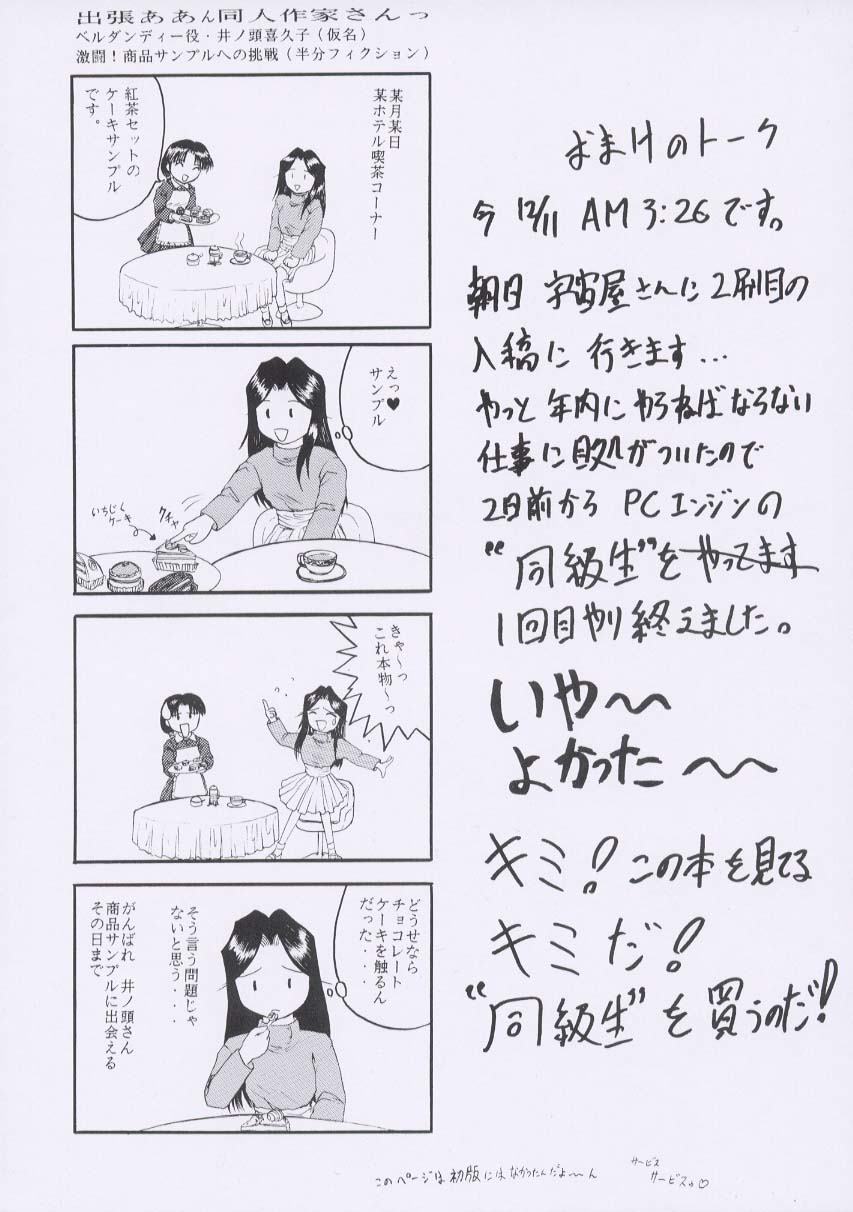 出張ああん同人作家さんっ
ベルダンディー役・井ノ頭喜久子（仮名）
激闘！商品サンプルへの挑戦（半分フィクション）
某月某日
某ホテル喫茶コーナー
紅茶セットの
ケーキサンプル
です。
えっ♥
サンプル
クチャ
いちじく
ケーキ
きゃ〜っ
これ本物〜っ
どうせなら
チョコレート
ケーキを触るん
だった・・・
そう言う問題じゃ
ないと思う・・・
がんばれ　井ノ頭さん
商品サンプルに出会える
その日まで
おまけのトーク
今 12/11 AM 3:26です。
朝日 宇宙屋さんに2刷目の
入稿に 行きます…
やっと 年内に やらねばならない
仕事に目処がついたので
2日前から PCエンジンの
“同級生”をやってます
1回目やり終えました。
いや〜〜
よかった〜〜
キミ！この本を見てる
キミだ！
“同級生”を買うのだ！
このページは初版にはなかったんだよ〜ん
サービス
サービスぅ♡